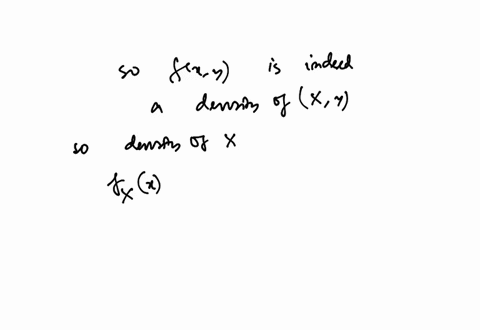 so f(x,y) is indeed
a density of (X, Y)
so density of X
f_X(x)